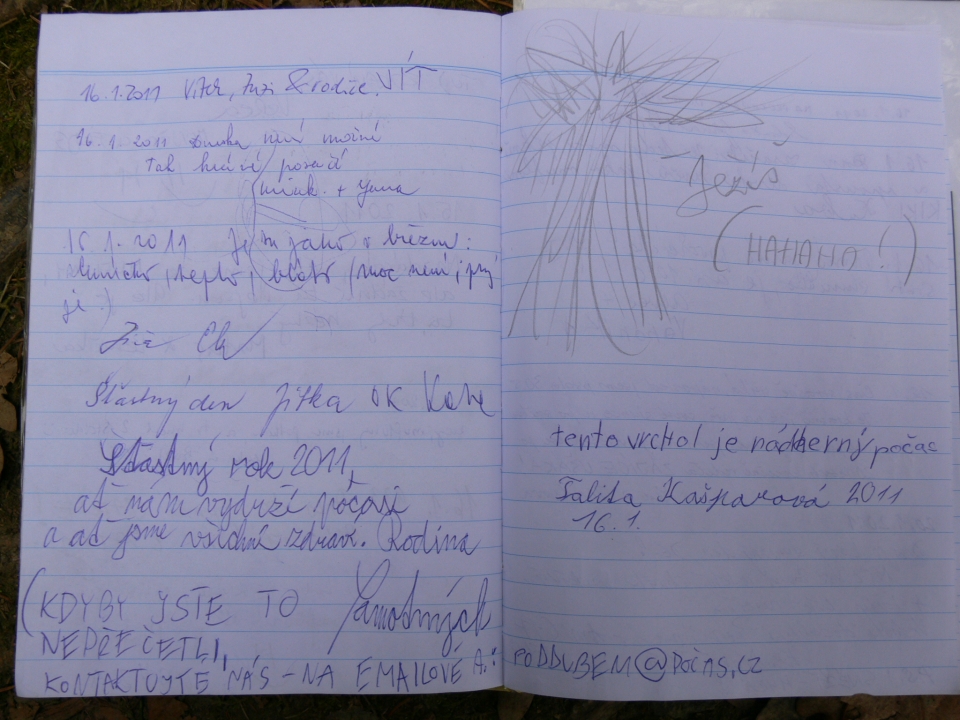 16.1.2011 Vítek, Zuzi & rodiče. VÍT
16.1.2011 není možné
Tak hrávé počasí
+ Yuma
16.1.2011 Je tu jako v březnu:
sluníčko, teplo, bláto (moc není, i prý
je :)
Šťastný den Jitka OK
Šťastný rok 2011,
ať nám vydrží počasí
a ať jsme všichni zdraví. Rodina
Samotných
(KDYBY JSTE TO
NEPŘEČETLI,
KONTAKTUJTE NÁS - NA EMAILOVÉ A.: PODDUBEM@POČAS.CZ
Ježíš
(HAHAHA!)
tento vrchol je nádherný počas
Talita Kašparová 2011
16.1.